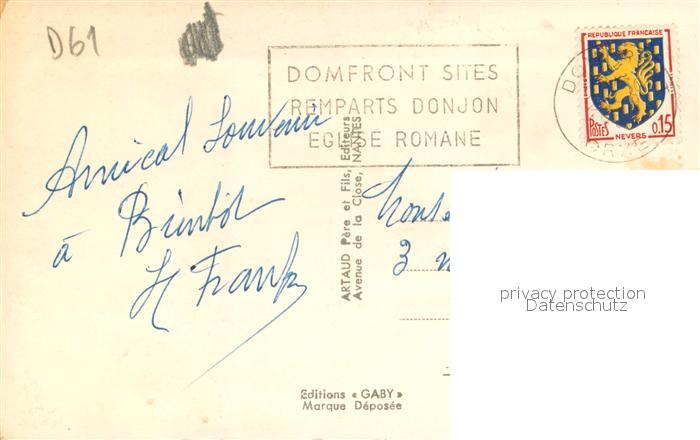 D61
DOMFRONT SITES
REMPARTS DONJON
EGLISE ROMANE
REPUBLIQUE FRANÇAISE
POSTES
0,15
NEVERS
Amical Souvenir
à Bientôt
ARTAUD Père et Fils, Editeurs
Avenue de la Close, NANTES
3
privacy protection
Datenschutz
Editions « GABY »
Marque Déposée